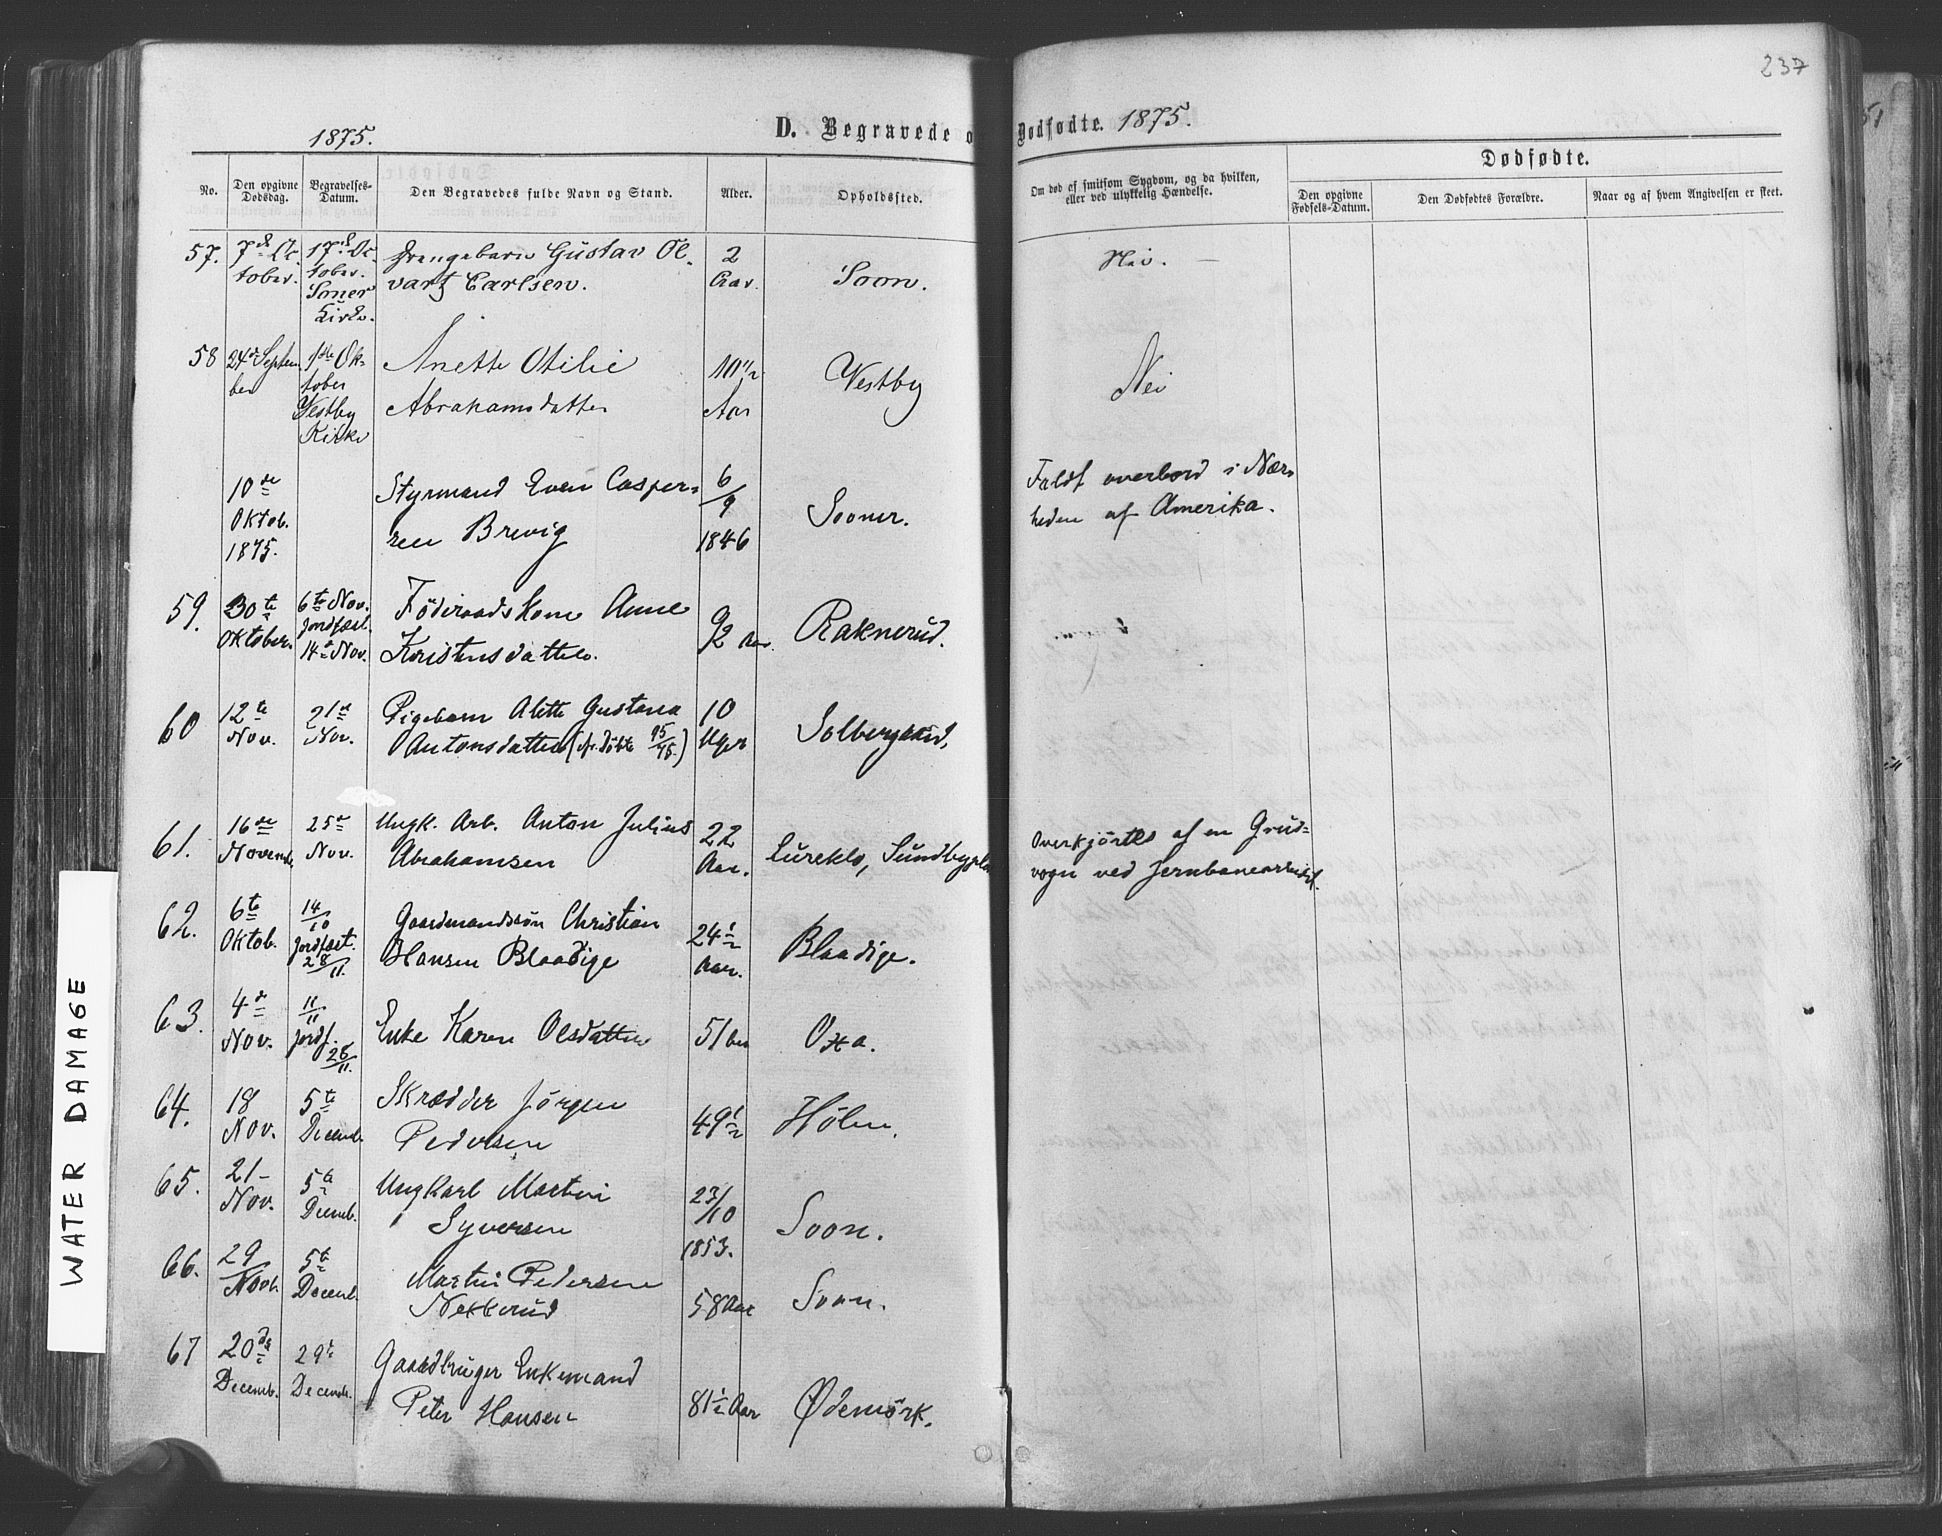 237
1875.
D. Begravede o
Dødfødte. 1875.
No.
Den opgivne Dødsdag.
Begravelses-Datum.
Den Begravedes fulde Navn og Stand.
Alder.
Opholdssted.
Om død af smitsom Sygdom, og da hvilken,
eller ved ulykkelig Hændelse.
Dødfødte.
Den opgivne Fødsels-Datum.
Den Dødfødtes Forældre.
Naar og af hvem Angivelsen er skeet.
57. 7de Oc- 17de Oc- Drengebarn Gustav Ol- 2
tober. tober. vart Carlsen. Aar. Soon. Nei.
Soner
Kirke.
58 24de Septem 1ste Ok- Anette Otilie 10 1/2 Vestby Nei
ber tober Abrahamsdatter Aar
Vestby
Kirke
10de Styrmand Even Casper- 6/9 Sooner. Faldt overbord i Nær-
Oktob. sen Brevig 1846 heden af Amerika.
1875.
59. 30te 6te Nov. Föderaadskone Anne 92 Aar. Raknerud.
Oktober. jordfæst. Kristensdatter.
14de Nov.
60 12te 21de Pigebarn Alette Gustava 10 Solbergsund,
Nov. Nov. Antonsdatter (Nr. Döbte 95/75.) Uger
61. 16de 25de Ungk. Arb. Anton Julius 22 Overkjörtes af en Grud-
Novembr Nov. Abrahamsen Aar. Sundbypl. vogn ved Jernbanearbeidet.
62. 6te 14/10 Gaardmandssön Christian 24 1/2 Blaadige.
Oktob. jordfæst. Hansen Blaadige Aar.
28/11.
63. 4de 11/11 Enke Karen Olsdatter 51 Aar Oxa.
Nov. jordf.
28/11.
64. 18 5te Skrædder Jörgen 49 1/2 Hölen.
Nov. Decemb. Pedersen
65. 21- 5te Ungkarl Martin 23/10 Soon.
Nov. Decemb. Syversen 1853.
66. 29 5te Martin Pedersen 58 Aar Soon.
Novb. Decemb. Nekkerud
67 20de 29de Gaardbruger Enkemand 81 1/2 Aar Ödemörk.
Decemb. Decemb. Peter Hansen
WATER DAMAGE
51